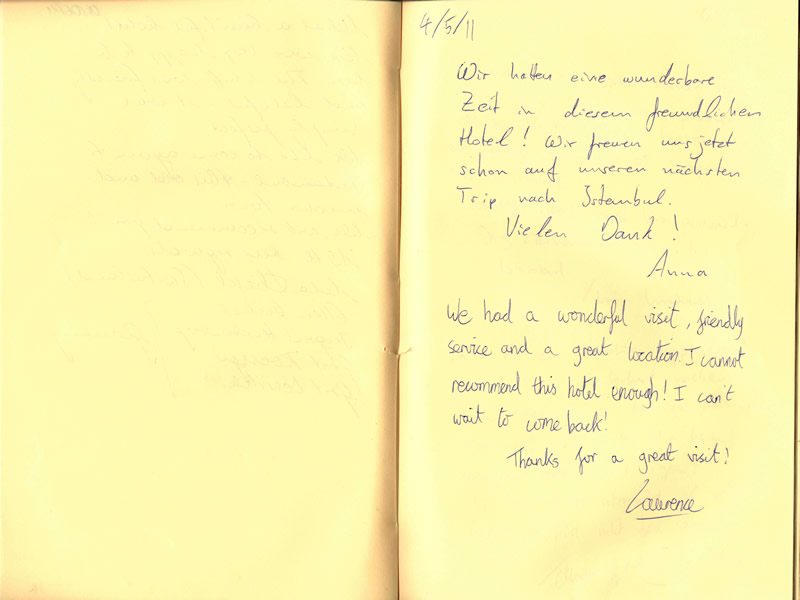 4/5/11
Wir hatten eine wunderbare
Zeit in diesem freundlichen
Hotel! Wir freuen uns jetzt
schon auf unseren nächsten
Trip nach Istanbul.
Vielen Dank!
Anna
We had a wonderful visit, friendly
service and a great location. I cannot
recommend this hotel enough! I can't
wait to come back!
Thanks for a great visit!
Lawrence